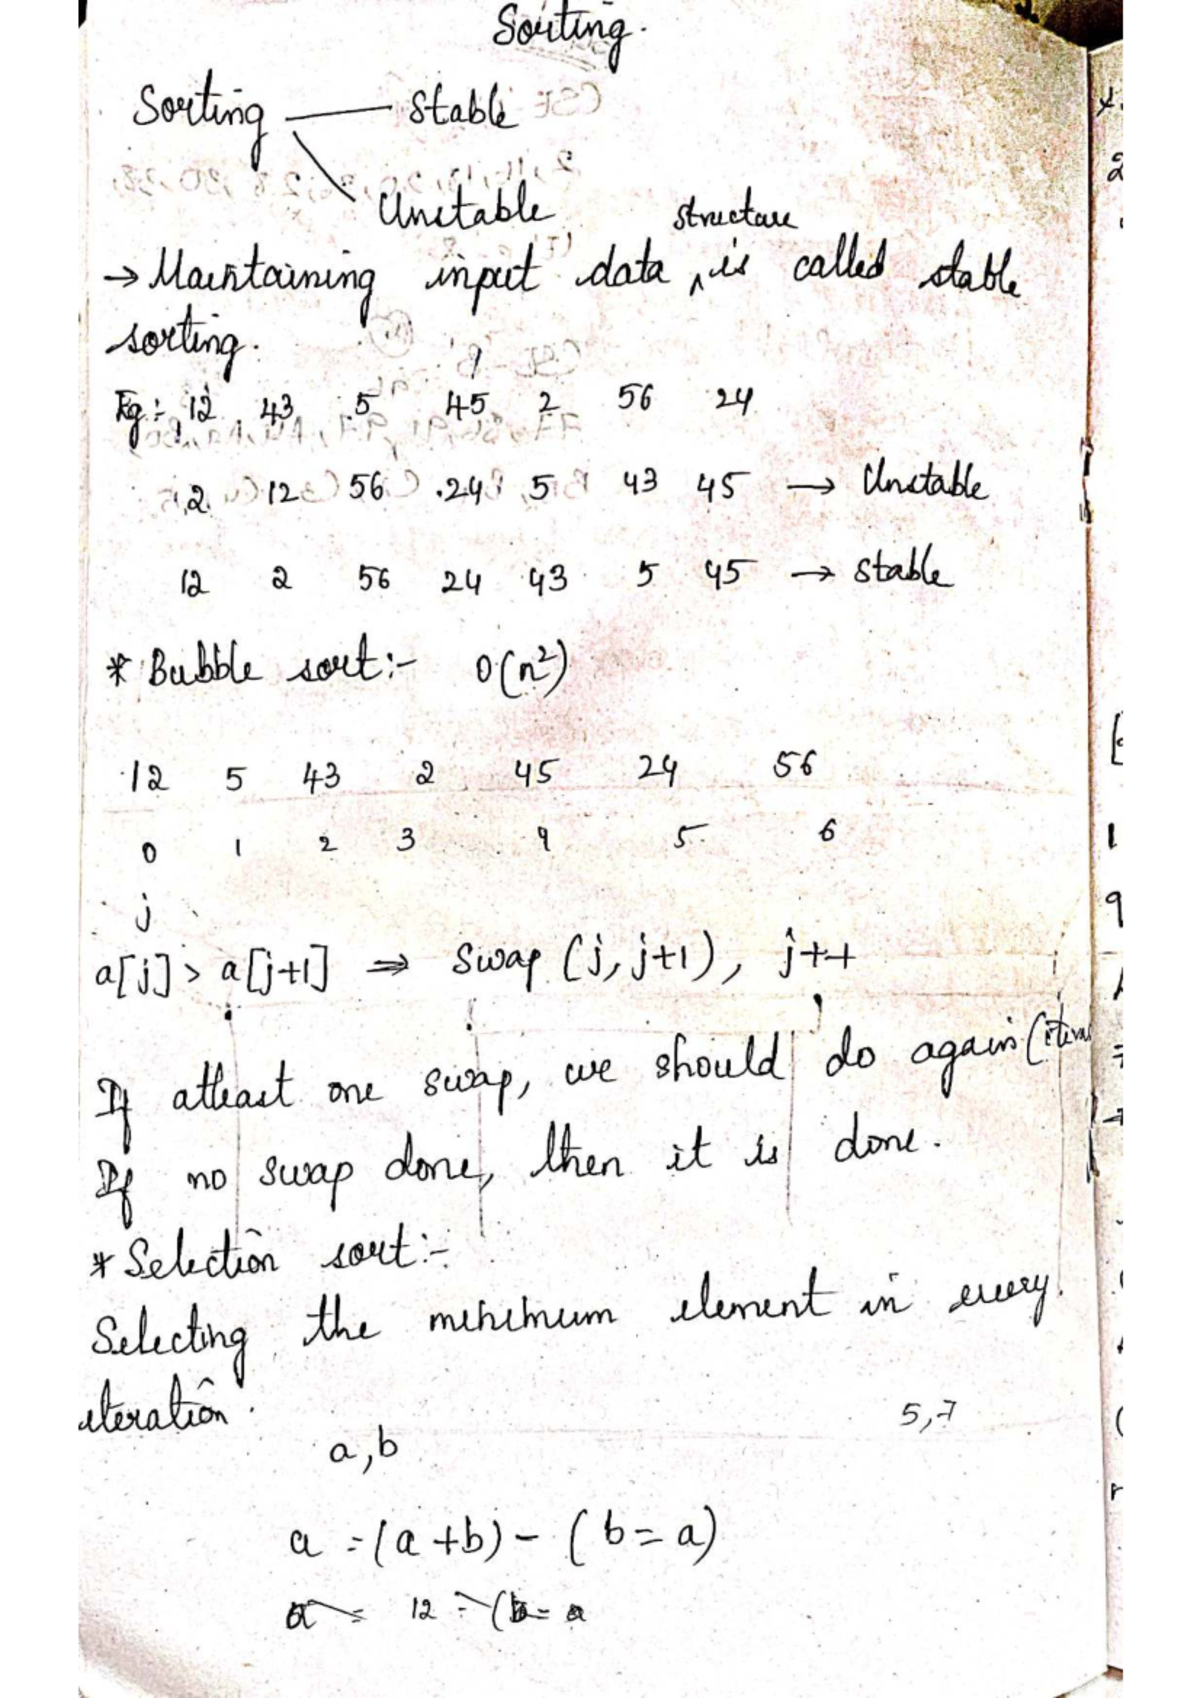 Sorting.
Sorting — Stable
Unstable
structure
→ Maintaining input data ^ is called stable
sorting.
Eg:- 12 43 5 45 2 56 24
2 12 56 24 5 43 45 → Unstable
12 2 56 24 43 5 45 → stable
* Bubble sort:- O(n²)
12 5 43 2 45 24 56
0 1 2 3 4 5 6
j
a[j] > a[j+1] ⇒ Swap (j, j+1), j++
If atleast one swap, we should do again
If no swap done, then it is done.
* Selection sort:-
Selecting the minimum element in every
iteration.
5,7
a,b
a = (a+b) - (b=a)
a = 12 - (b= a